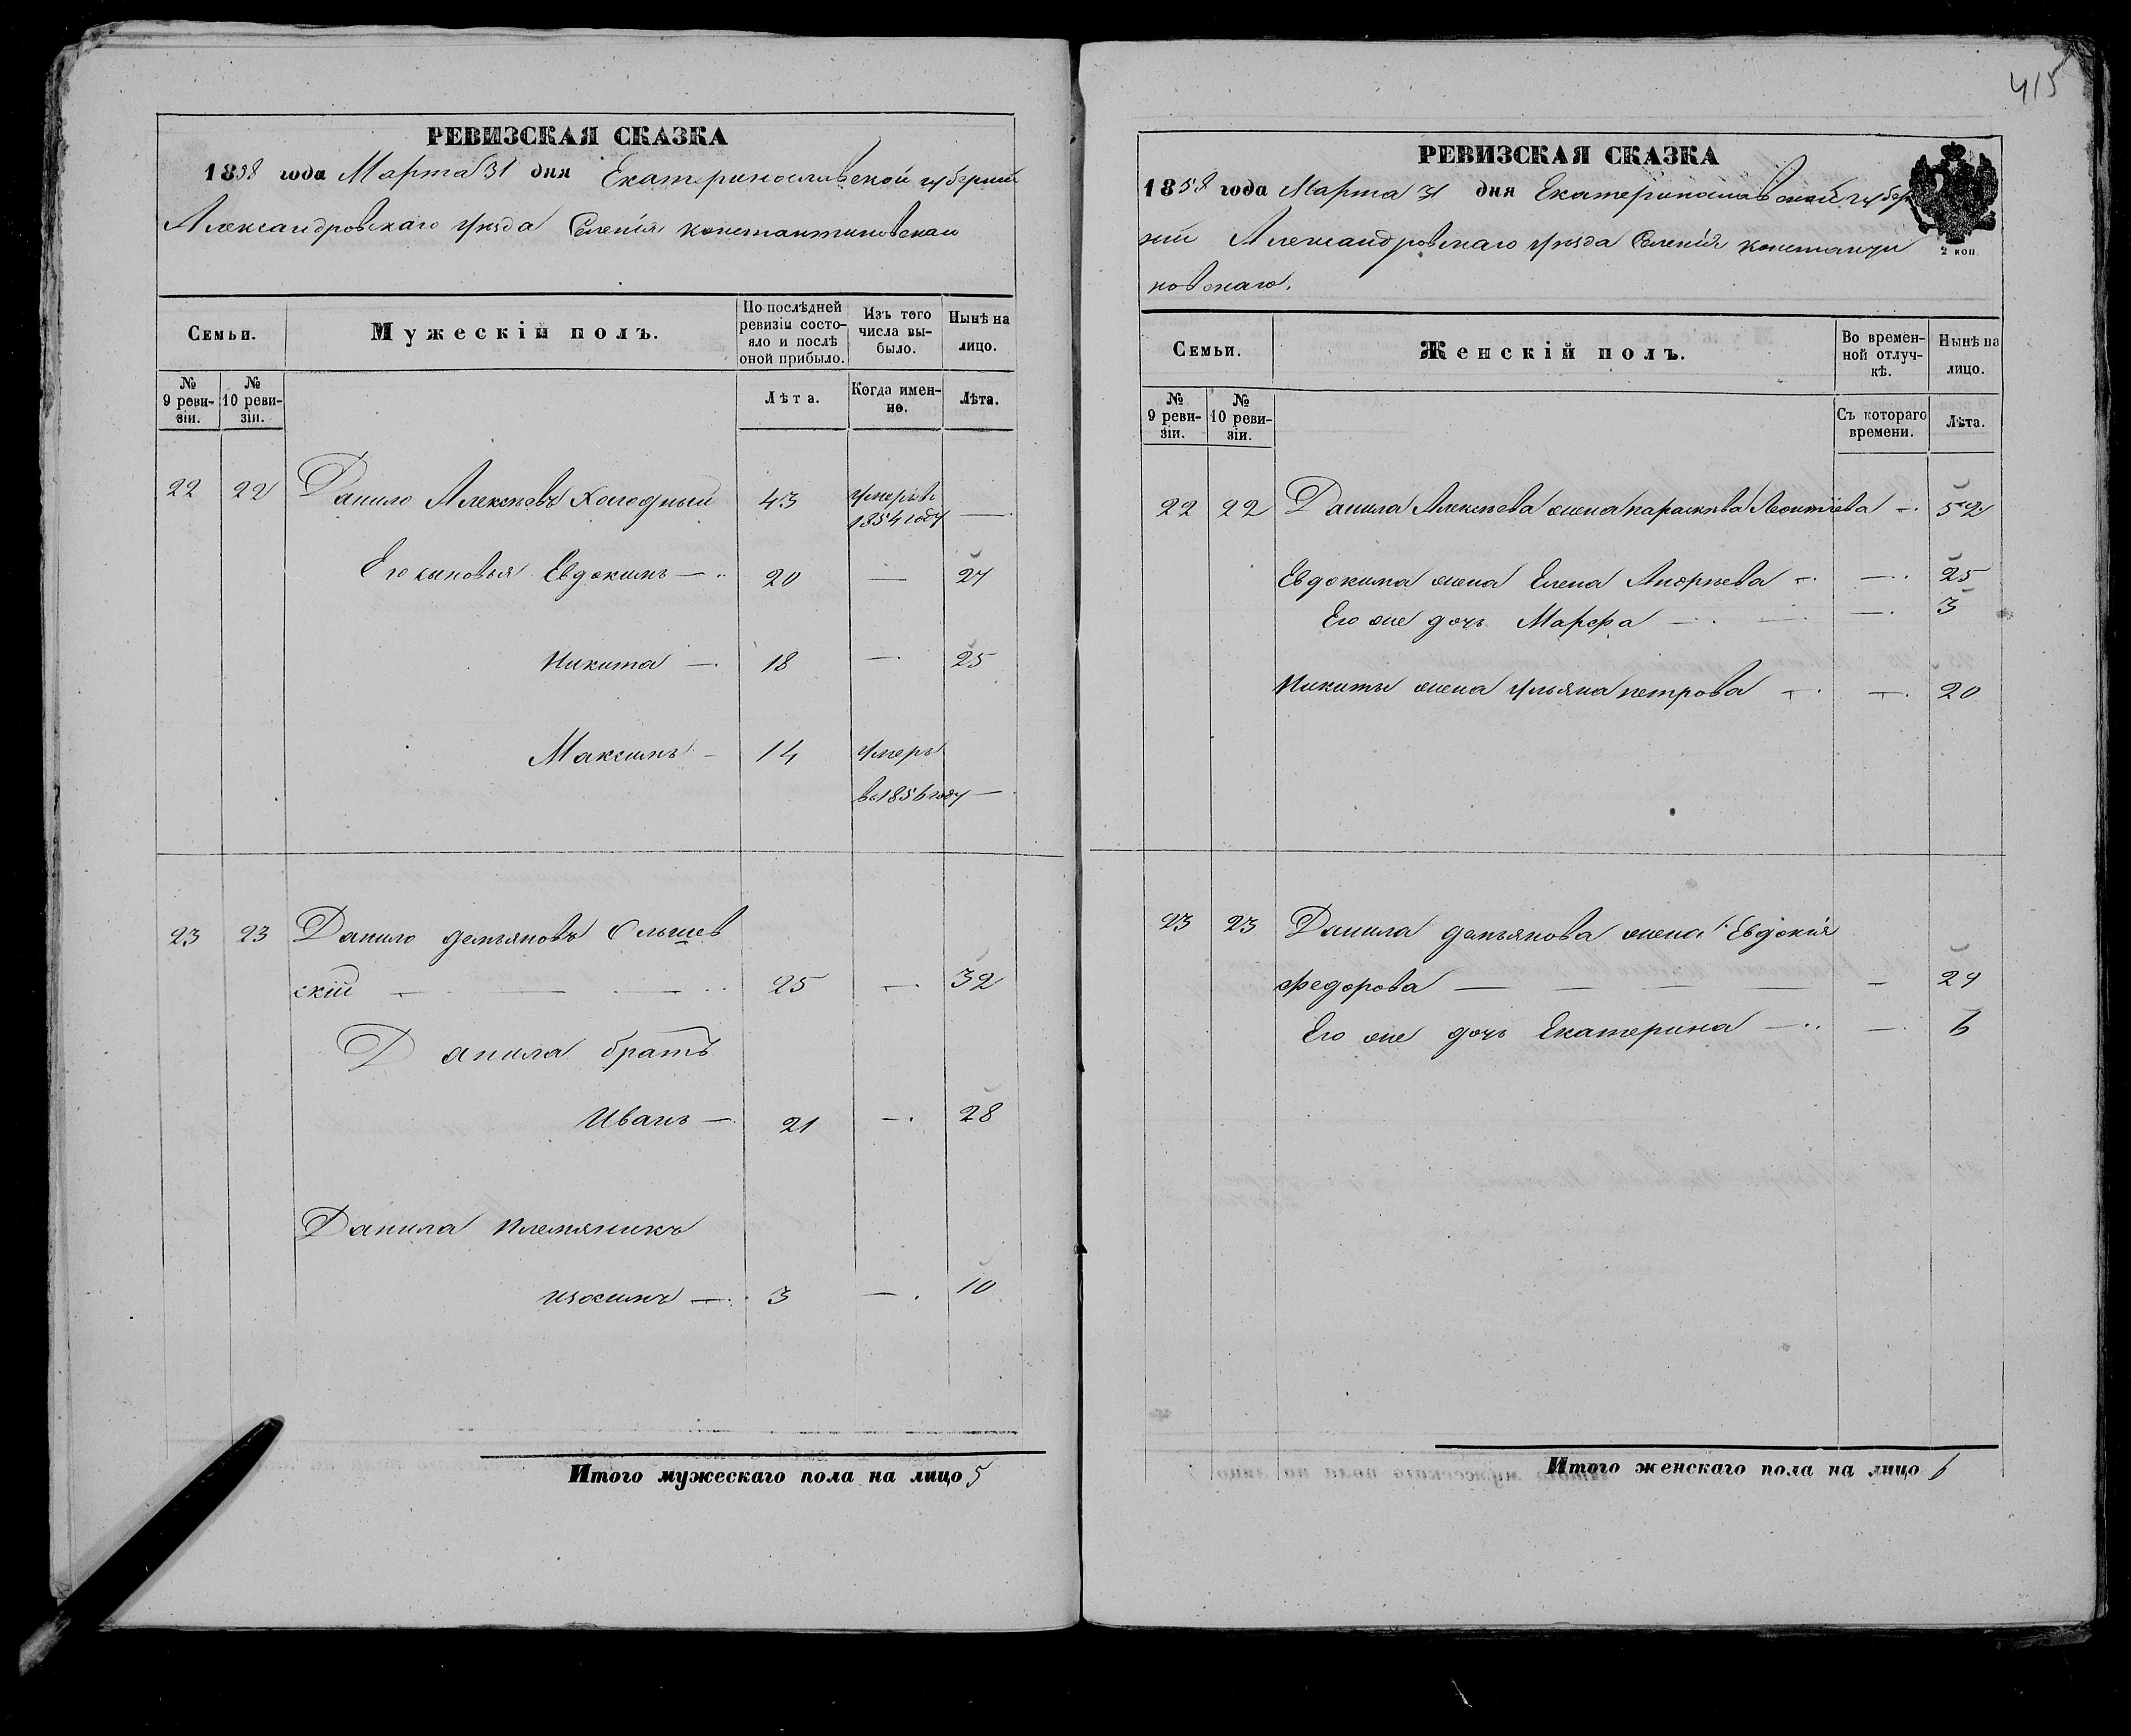 415
РЕВИЗСКАЯ СКАЗКА
1858 года Марта 31 дня Екатеринославской губернии
Александровскаго уѣзда Селенія Константиновскаго
Семьи.
Мужескій полъ.
По послѣдней ревизіи состояло и послѣ оной прибыло.
Изъ того числа выбыло.
Нынѣ на лицо.
№ 9 ревизіи.
№ 10 ревизіи.
Лѣта.
Когда именно.
Лѣта.
22 22 Данило Алексѣевъ Холодный 43 умеръ въ 1854 году —
Его сыновья Евдокимъ — 20 — 27
Никита — 18 — 25
Максимъ — 14 умеръ
въ 1856 году —
23 23 Данило демьяновъ Ольшев
скій — 25 — 32
Данила братъ
Иванъ — 21 — 28
Данила племяникъ
— 3 — 10
Итого мужескаго пола на лицо 5
РЕВИЗСКАЯ СКАЗКА
1858 года Марта 31 дня Екатеринославской губер
2 коп
ніи Александровскаго уѣзда Селенія Константи
новскаго.
Семьи.
Женскій полъ.
Во временной отлучкѣ.
Нынѣ на лицо.
№ 9 ревизіи.
№ 10 ревизіи.
Съ котораго времени.
Лѣта.
22 22 Данила Алексѣева жена параскева Леонтіева — 52
Евдокима жена Елена Андрѣева — — 25
Его же дочь Марфа — — 3
Никиты жена ульяна петрова — — 20
23 23 Данила демьянова жена Евдокія
федорова — — 29
Его же дочь Екатерина — — 6
Итого женскаго пола на лицо 6